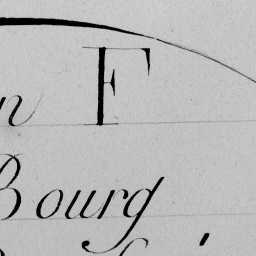 n F
Bourg